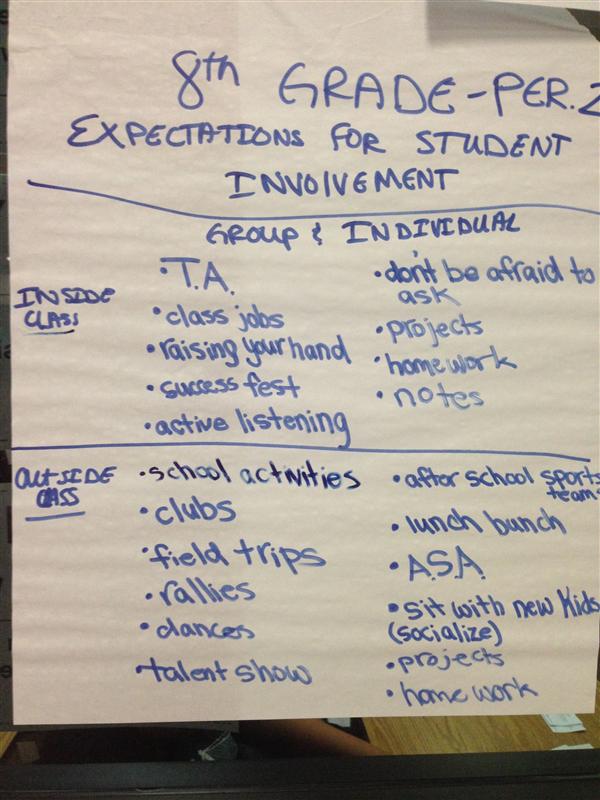 8th GRADE-PER.2
EXPECTATIONS FOR STUDENT
INVOLVEMENT
GROUP & INDIVIDUAL
INSIDE
CLASS
• T.A.
• class jobs
• raising your hand
• success fest
• active listening
• don't be afraid to
ask
• projects
• homework
• notes
OUTSIDE
CLASS
• school activities
• clubs
• field trips
• rallies
• dances
• talent show
• after school sports
teams
• lunch bunch
• A.S.A.
• sit with new kids
(socialize)
• projects
• homework